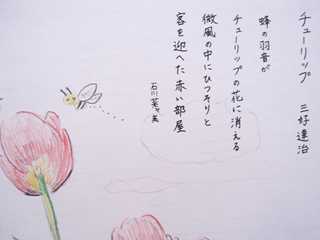 チューリップ 三好達治
蜂の羽音が
チューリップの花に消える
微風の中にひつそりと
客を迎へた赤い部屋